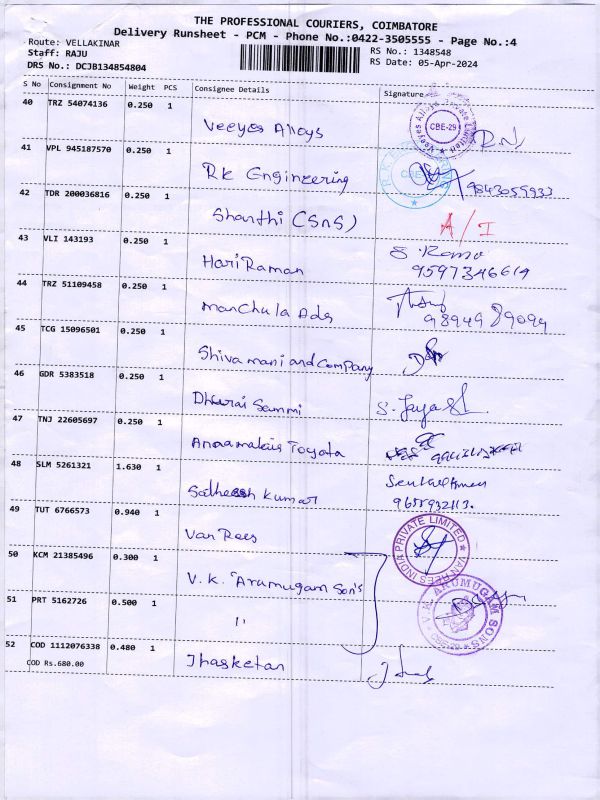 THE PROFESSIONAL COURIERS, COIMBATORE
Delivery Runsheet - PCM - Phone No.:0422-3505555 - Page No.:4
Route: VELLAKINAR RS No.: 1348548
Staff: RAJU RS Date: 05-Apr-2024
DRS No.: DCJB134854804
S No Consignment No Weight PCS Consignee Details Signature
40 TRZ 54074136 0.250 1
Veeyes Alloys CBE-29
41 VPL 945187570 0.250 1
RK Engineering 9843055933
42 TDR 200036816 0.250 1
Shanthi (SnS) A/I
43 VLI 143193 0.250 1
Hari Raman 9597346614
44 TRZ 51109458 0.250 1
Manchula Ads 98949 89094
45 TCG 15096501 0.250 1
Shiva mani and Company
46 GDR 5383518 0.250 1
Dhurai Sammi
47 TNJ 22605697 0.250 1
Annamalais Toyota
48 SLM 5261321 1.630 1
Satheesh Kumar
49 TUT 6766573 0.940 1
Van Rees VAN REES INDIA PRIVATE LIMITED
50 KCM 21385496 0.300 1
V.K. Arumugam Son's
51 PRT 5162726 0.500 1
" V.K. ARUMUGAM SONS
52 COD 1112076338 0.480 1
COD Rs.680.00 Jhasketan